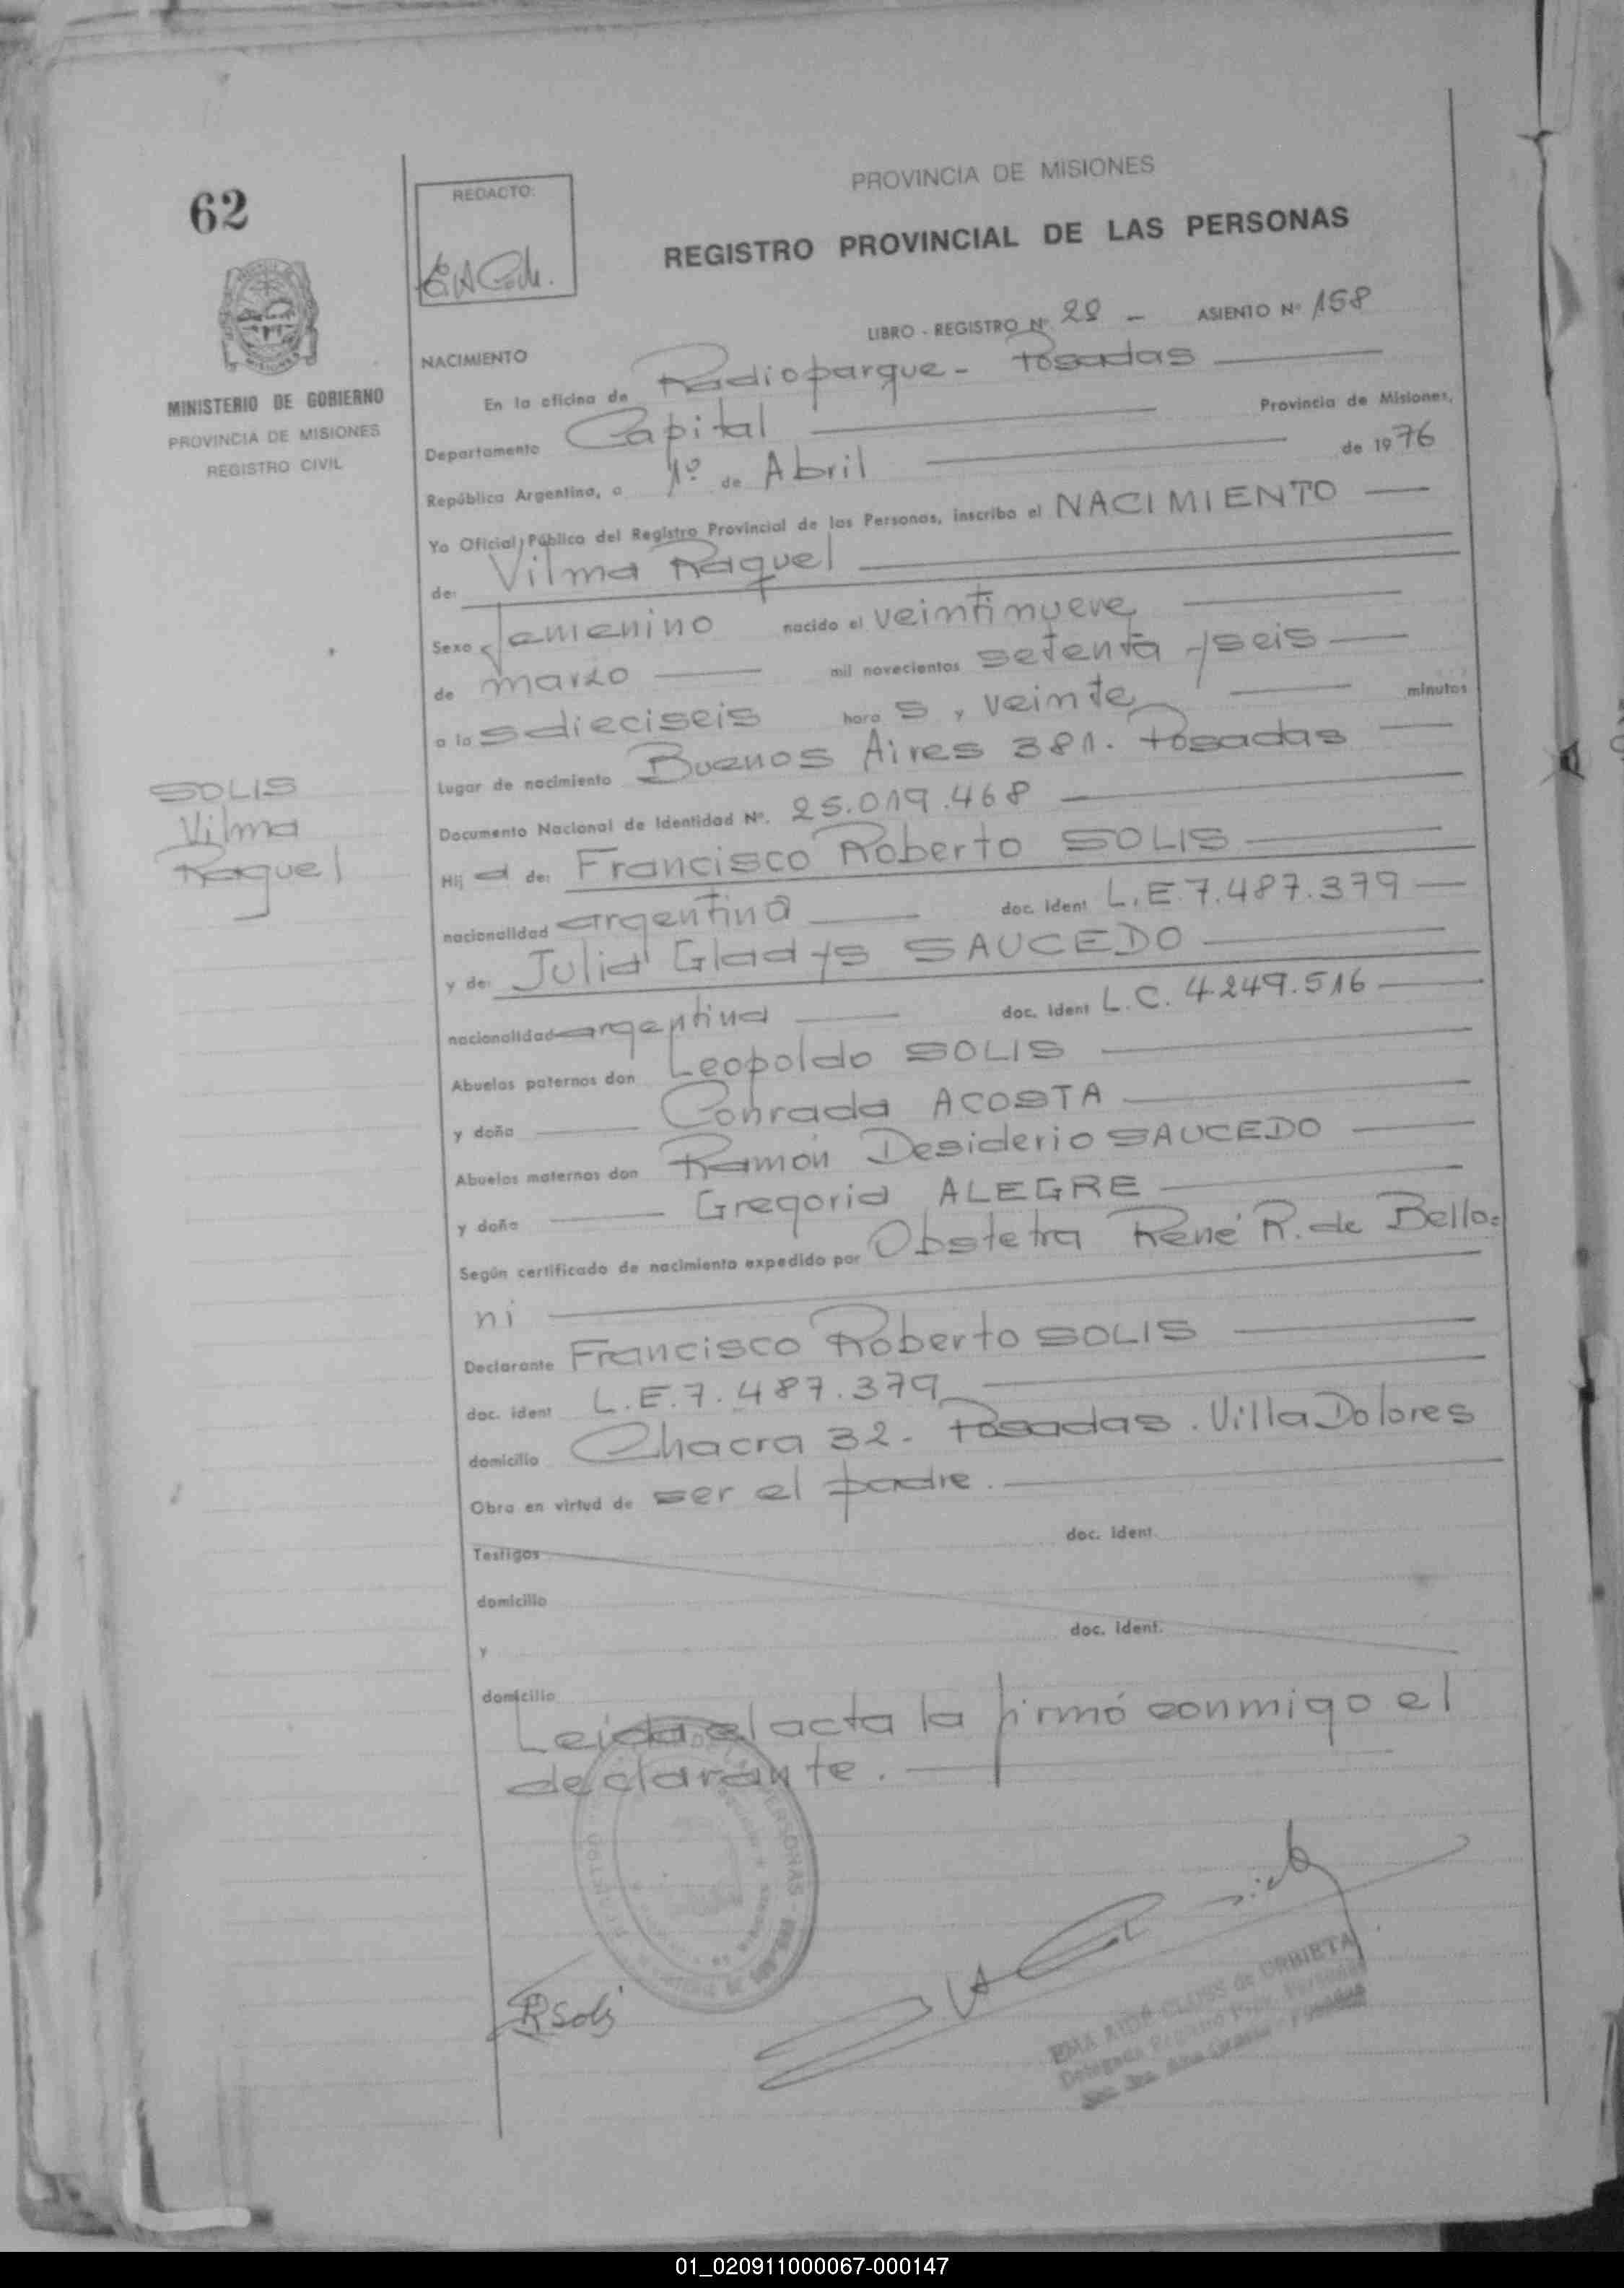 62
REDACTO:
PROVINCIA DE MISIONES
REGISTRO PROVINCIAL DE LAS PERSONAS
MINISTERIO DE GOBIERNO
PROVINCIA DE MISIONES
REGISTRO CIVIL
LIBRO - REGISTRO Nº 2º - ASIENTO Nº 158
NACIMIENTO
En la oficina de Radioparque - Posadas
Departamento Capital Provincia de Misiones,
República Argentina, a 1º de Abril de 1976
Yo Oficial Público del Registro Provincial de las Personas, inscribo el NACIMIENTO
de: Vilma Raquel
Sexo femenino nacido el veintinueve
de marzo mil novecientos setenta y seis
a las dieciseis horas y veinte minutos
Lugar de nacimiento Buenos Aires 381. Posadas
SOLIS
Vilma
Raquel
Documento Nacional de Identidad Nº. 25.019.468
Hija de: Francisco Roberto SOLIS
nacionalidad argentina doc. ident L.E.7.487.379
y de: Julia Gladys SAUCEDO
nacionalidad argentina doc. ident L.C. 4.249.516
Abuelos paternos don Leopoldo SOLIS
y doña Conrada ACOSTA
Abuelos maternos don Ramón Desiderio SAUCEDO
y doña Gregoria ALEGRE
Según certificado de nacimiento expedido por Obstetra René R. de Bello=
ni
Declarante Francisco Roberto SOLIS
doc. ident L.E.7.487.379
domicilio Chacra 32. Posadas. Villa Dolores
Obra en virtud de ser el padre.
Testigos doc. ident.
domicilio
y doc. ident.
domicilio
Leida el acta la firmó conmigo el
declarante.
RSolis
EMA AIDA CLOSS de URBIETA
01_020911000067-000147